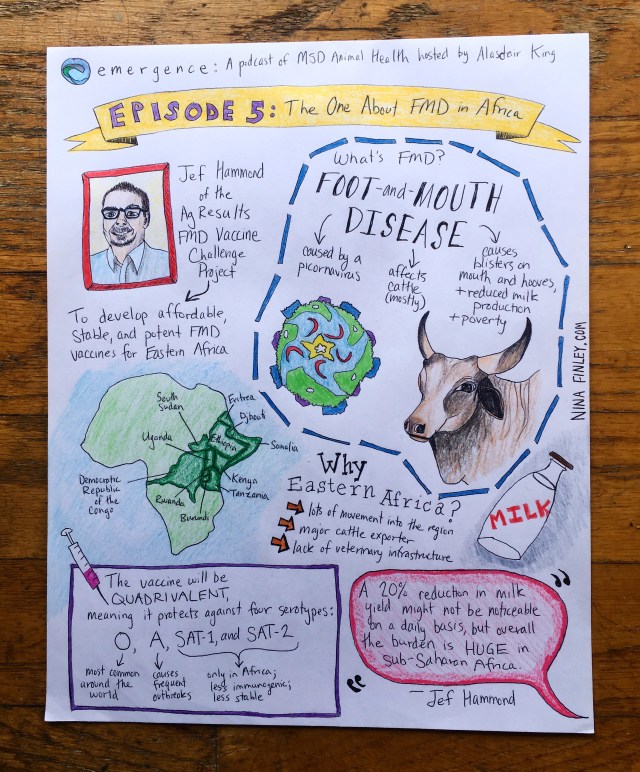 emergence: A podcast of MSD Animal Health hosted by Alasdair King
EPISODE 5: The One About FMD in Africa
Jef Hammond
of the
AgResults
FMD Vaccine
Challenge
Project
To develop affordable,
stable, and potent FMD
vaccines for Eastern Africa
What's FMD?
FOOT-and-MOUTH
DISEASE
caused by a
picornavirus
affects
cattle
(mostly)
causes
blisters on
mouth and hooves,
+ reduced milk
production
+ poverty
NINA FINLEY.COM
South
Sudan
Eritrea
Djibouti
Uganda
Ethiopia
Somalia
Democratic
Republic
of the
Congo
Kenya
Tanzania
Rwanda
Burundi
Why
Eastern Africa?
lots of movement into the region
major cattle exporter
lack of veterinary infrastructure
MILK
The vaccine will be
QUADRIVALENT,
meaning it protects against four serotypes:
O, A, SAT-1, and SAT-2
most common
around the
world
causes
frequent
outbreaks
only in Africa;
less immunogenic;
less stable
"
A 20% reduction in milk
yield might not be noticeable
on a daily basis, but overall
the burden is HUGE in
sub-Saharan Africa.
"
— Jef Hammond